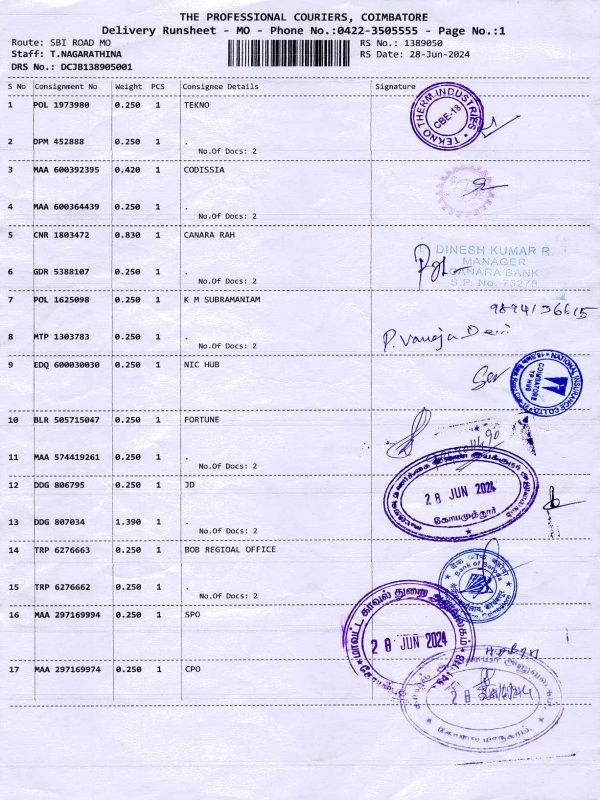 THE PROFESSIONAL COURIERS, COIMBATORE
Delivery Runsheet - MO - Phone No.:0422-3505555 - Page No.:1
Route: SBI ROAD MO RS No.: 1389050
Staff: T.NAGARATHINA RS Date: 28-Jun-2024
DRS No.: DCJB138905001
S No Consignment No Weight PCS Consignee Details Signature
1 POL 1973980 0.250 1 TEKNO
TEKNO THERM INDUSTRIES
CBE-18
2 DPM 452888 0.250 1 .
No.Of Docs: 2
3 MAA 600392395 0.420 1 CODISSIA
4 MAA 600364439 0.250 1 .
No.Of Docs: 2
5 CNR 1803472 0.830 1 CANARA RAH
DINESH KUMAR R.
MANAGER
CANARA BANK
S.P. No. 75278
6 GDR 5388107 0.250 1 .
No.Of Docs: 2
7 POL 1625098 0.250 1 K M SUBRAMANIAM
8 MTP 1303783 0.250 1 .
P. Vanaja Devi
No.Of Docs: 2
9 EDQ 600030030 0.250 1 NIC HUB
NATIONAL INSURANCE CO.LTD
COIMBATORE
TP HUB
10 BLR 505715047 0.250 1 FORTUNE
11 MAA 574419261 0.250 1 .
No.Of Docs: 2
12 DDG 806795 0.250 1 JD
28 JUN 2024
கோயமுத்தூர்
13 DDG 807034 1.390 1 .
No.Of Docs: 2
14 TRP 6276663 0.250 1 BOB REGIOAL OFFICE
Bank of Baroda
15 TRP 6276662 0.250 1 .
No.Of Docs: 2
16 MAA 297169994 0.250 1 SPO
மாவட்ட காவல் துறை அலுவலகம்
28 JUN 2024
641 018
17 MAA 297169974 0.250 1 CPO
28
கோவை மாநகரம்